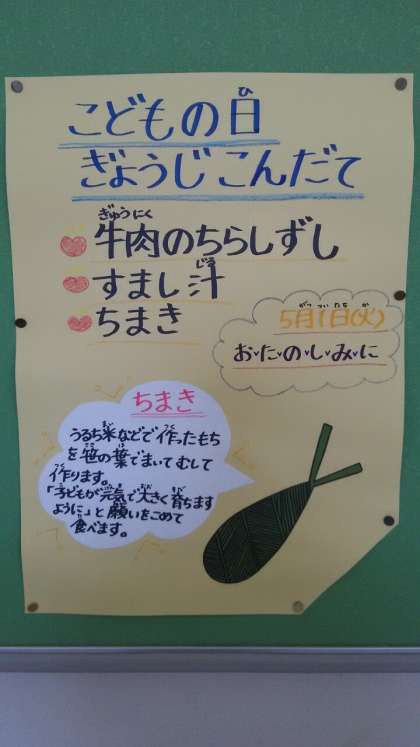 こどもの日
ぎょうじこんだて
牛肉のちらしずし
すまし汁
ちまき
5月1日(火)
お・た・の・し・み・に
ちまき
うるち米などで作ったもち
を笹の葉でまいてむして
作ります。
「子どもが元気で大きく育ちます
ように」と願いをこめて
食べます。